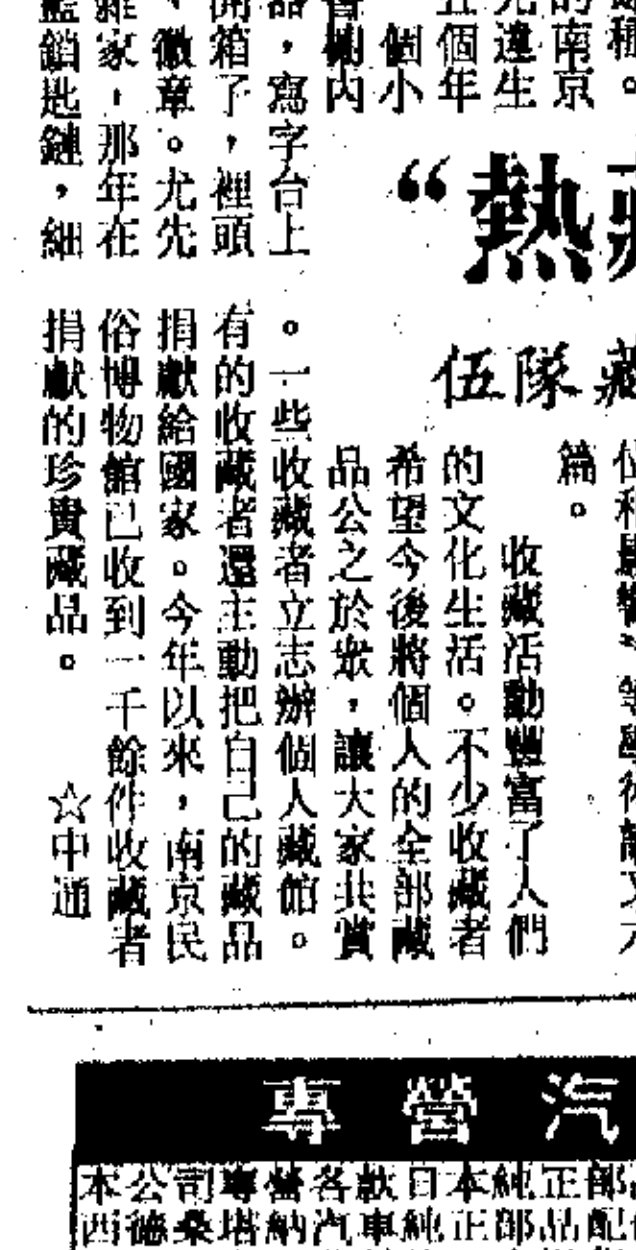 種。
的南京
生
五個年
個小
內
，寫字台上
開箱了，裡頭
、徽章。尤先
雜家，那年在
藍鎖匙鏈，細
“熱
藏隊伍
篇。
收藏活動豐富了人們
的文化生活。不少收藏者
希望今後將個人的全部藏
品公之於眾，讓大家共賞
。一些收藏者立志辦個人藏館。
有的收藏者還主動把自己的藏品
捐獻給國家。今年以來，南京民
俗博物館已收到一千餘件收藏者
捐獻的珍貴藏品。 ☆中通
專營汽
本公司專營各款日本純正部
西德桑塔納汽車純正部品配